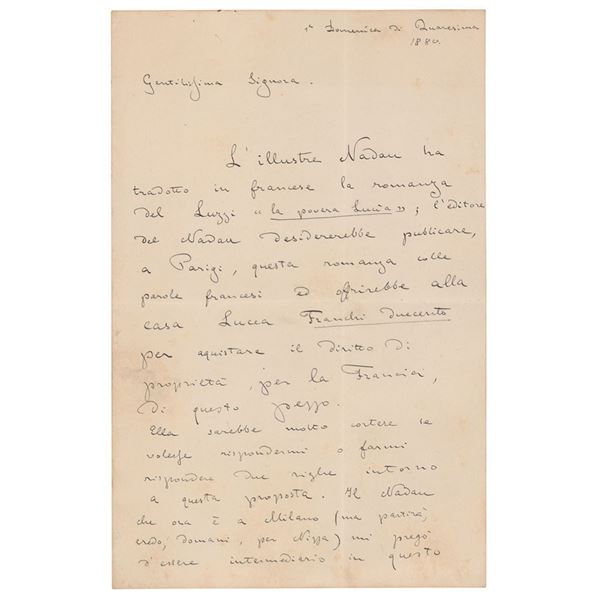 1ª Domenica di Quaresima
1880.
Gentilissima Signora.
L'illustre Nadau ha
tradotto in francese la romanza
del Luzzi "la povera Lucia"; l'editore
del Nadau desidererebbe publicare,
a Parigi, questa romanza colle
parole francesi ed offrirebbe alla
casa Lucca Franchi duecento
per aquistare il diritto di
proprietà, per la Francia,
di questo pezzo.
Ella sarebbe molto cortese se
volesse rispondermi o farmi
rispondere due righe intorno
a questa proposta. Il Nadau
che ora è a Milano (ma partirà,
credo, domani, per Nizza) mi pregò
d'essere intermediario in questo